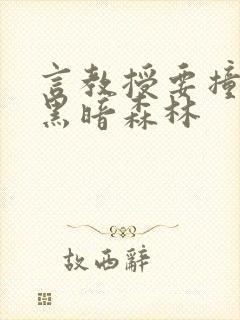 言教授要撞
黑暗森林
故西辞